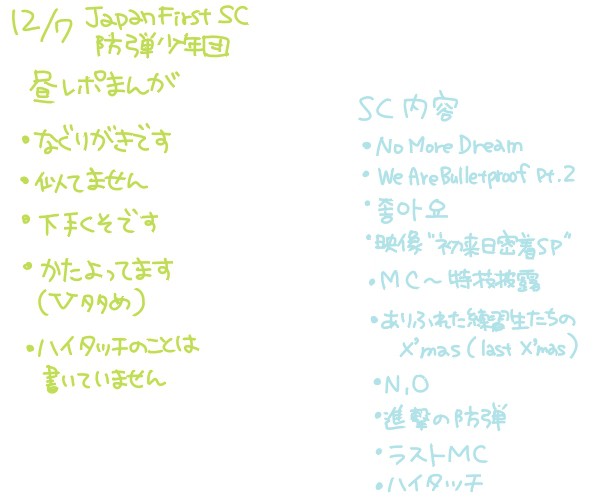 12/7 Japan First SC
防弾少年団
昼レポまんが
・なぐりがきです
・似てません
・下手くそです
・かたよってます
(V多め)
・ハイタッチのことは
書いていません
SC 内容
・No More Dream
・We Are Bulletproof Pt.2
・좋아요
・映像"初来日密着SP"
・MC～特技披露
・ありふれた練習生たちの
X'mas (last X'mas)
・N,O
・進撃の防弾
・ラストMC
・ハイタッチ